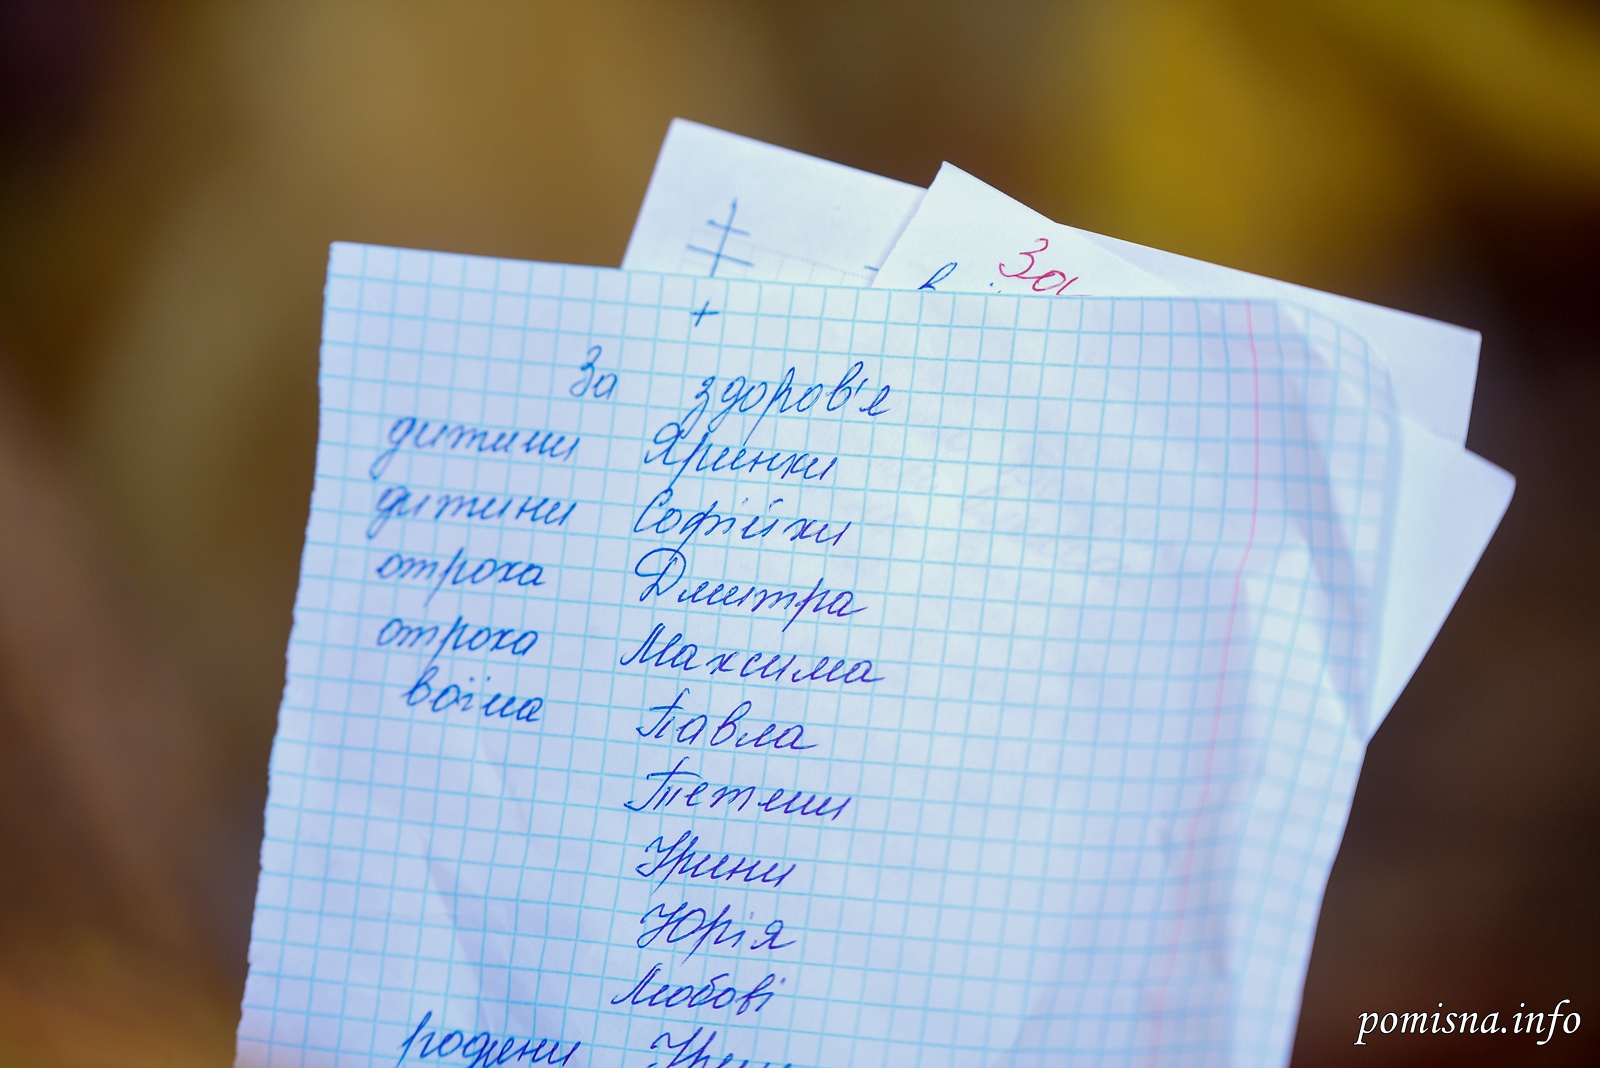 За
За здоров'я
дитини Яринки
дитини Софійки
отрока Дмитра
отрока Максима
воїна Павла
Тетяни
Ірини
Юрія
Любові
родини
pomisna.info